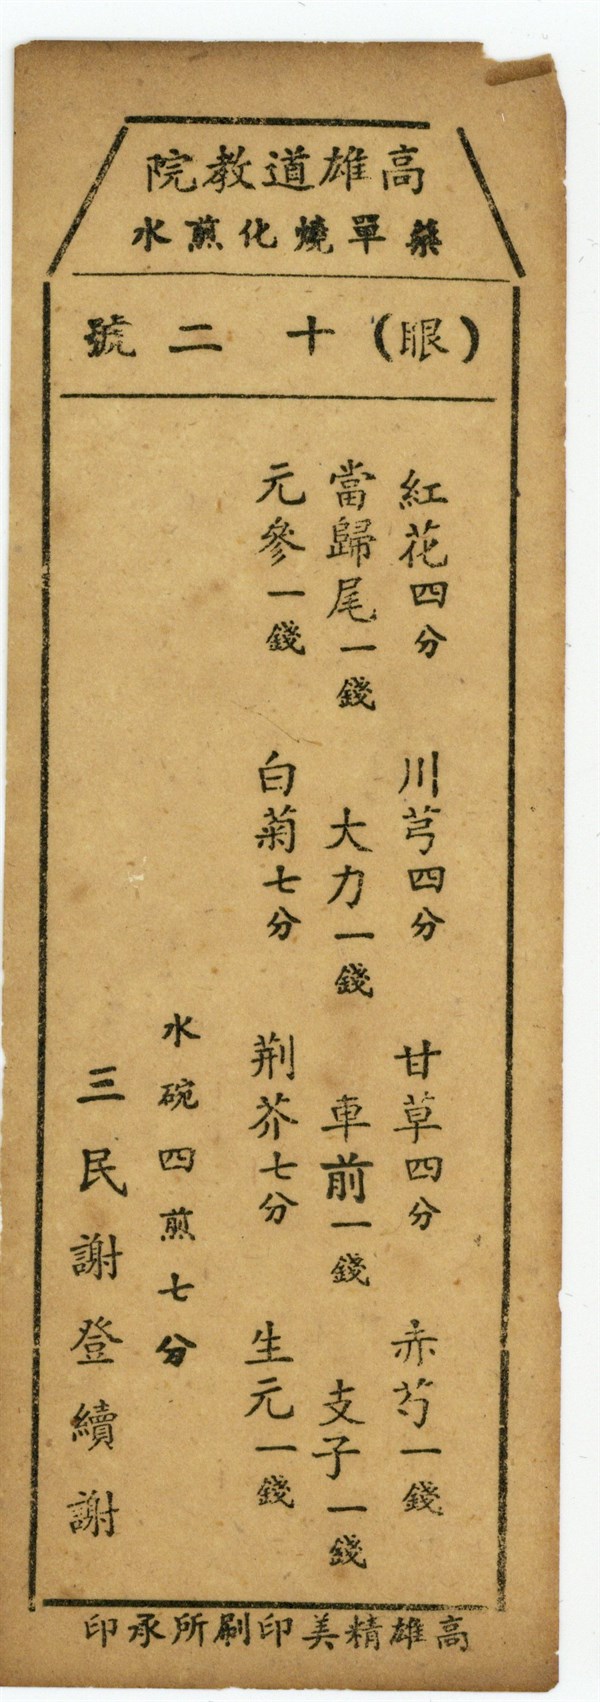 高雄道教院
藥單燒化煎水
(眼)十二號
紅花四分 川芎四分 甘草四分 赤芍一錢
當歸尾一錢 大力一錢 車前一錢 支子一錢
元參一錢 白菊七分 荆芥七分 生元一錢
水碗四煎七分
三民謝登續謝
高雄精美印刷所承印